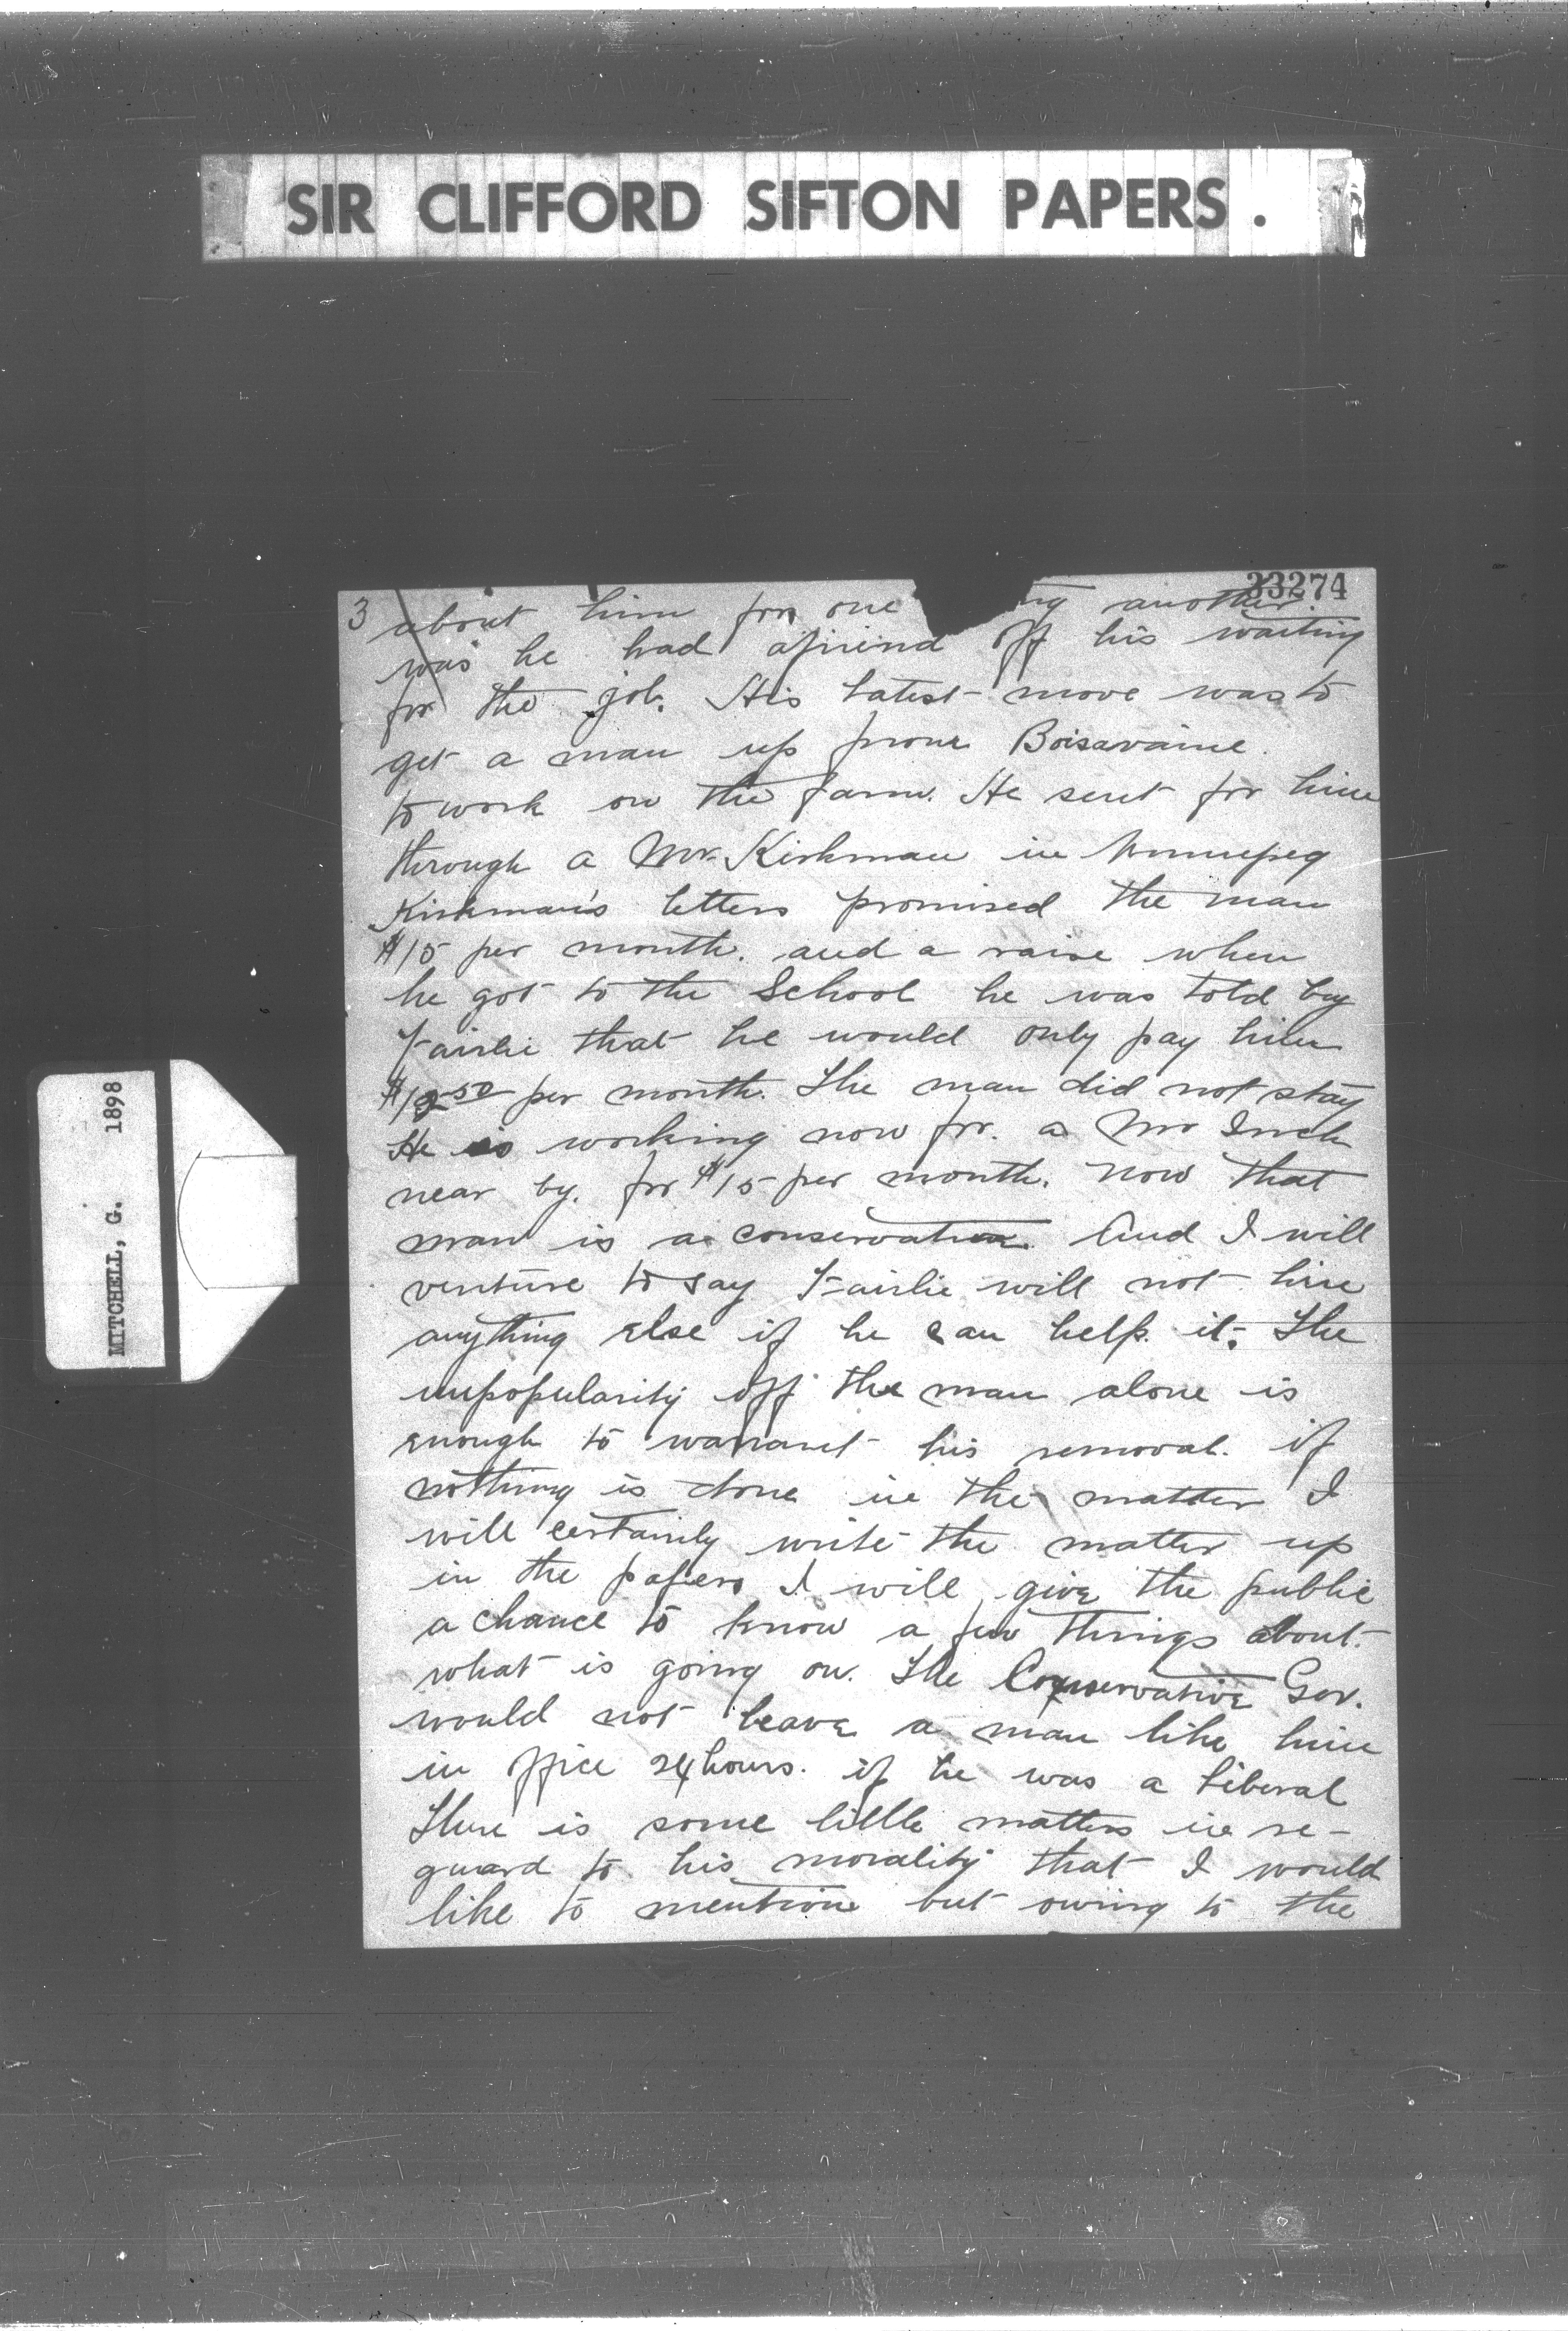 SIR CLIFFORD SIFTON PAPERS.
33274
MITCHELL, G. 1898
3 about him for one ng another
was he had afriend off his waiting
for the job. His latest move was to
get a man up from Boisavaine.
to work on the farm. He sent for him
through a Mr Kirkman in Winnipeg
Kirkman's letters promised the man
$15 per month. and a raise when
he got to the School he was told by
Fairlie that he would only pay him
$12 50 per month. The man did not stay
He is working now for. a Mr
near by. for $15 per month. now that
man is a conservative. And I will
venture to say Fairlie will not hire
anything else if he can help it. The
unpopularity off the man alone is
enough to warrant his removal. if
nothing is done in the matter I
will certainly write the matter up
in the papers I will give the public
a chance to know a few things about.
what is going on. The Conservative Gov.
would not leave a man like him
in office 24 hours. if he was a Liberal
There is some little matters in re-
guard to his morality that I would
like to mention but owing to the